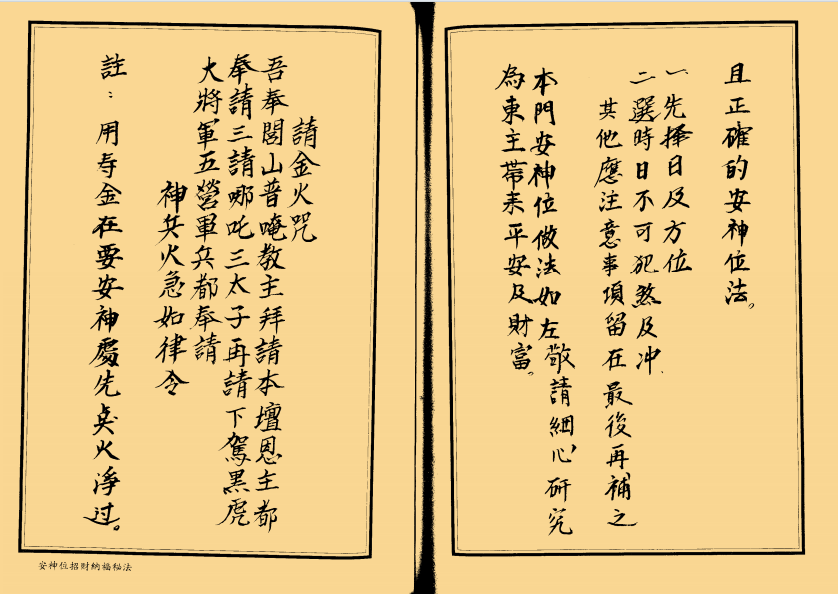 且正確的安神位法。
一先择日及方位
二選時日不可犯煞及冲.
其他應注意事項留在最後再補之
本門安神位做法如左敬請細心研究
為東主帶来平安及財富。
請金火咒
吾奉閭山普唵教主拜請本壇恩主都
奉請三請哪吒三太子再請下駕黑虎
大將軍五營軍兵都奉請
神兵火急如律令
註：用寿金在要安神處先点火淨过。
安神位招財納福秘法